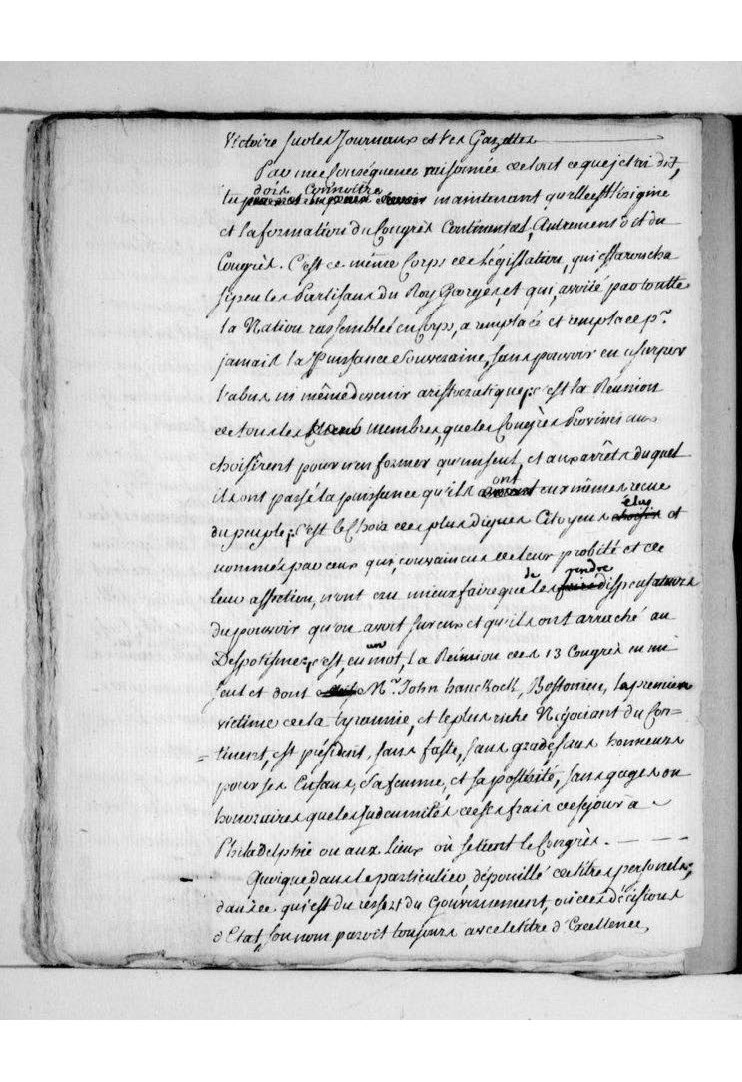 Victoire sur les Journaux et les Gazettes
Par une Conséquence raisonnée de tout ce que je t'ai dit,
dois Connoitre
tu maintenant quelle est l'origine
et la formation du Congrès Continental, Autrement dit du
Congrès. C'est ce même Corps de Législation, qui effaroucha
si peu les Partisans du Roy Georges, et qui, avoüé par toutte
la Nation rassemblée en Corps, a remplacé et remplace pr.
jamais la Puissance Souveraine, sans pouvoir en usurper
l'abus ni même devenir aristocratique; c'est la Réunion
de tous les membres, que les Congrès Provinciaux
choisirent pour n'en former qu'un seul, et aux arrêts duquel
ont
ils ont passé la puissance qu'ils eux mêmes recue
élus
du peuple; c'est le Choix des plus dignes Citoyens choisis et
nommés par ceux qui, convaincus de leur probité et de
de rendre
leur affection, n'ont cru mieux faire que les faire dispensateurs
du pouvoir qu'on avoit sur eux et qu'ils ont arraché au
un
Despotisme; c'est, en mot, la Réunion des 13 Congrès en un
seul et dont Mr. John hanckock, Bostonien, la premiere
victime de la tyrannie, et le plus riche Négociant du Con-
= tinent, est président, sans faste, sans grade sans honneurs
pour ses Enfans, sa femme, et sa postérité, sans gages ou
honoraires que les Indemnités de ses frais de séjour a
Philadelphie ou aux lieux où se tient le Congrès. - - -
Quoique, dans le particulier, dépouillé de titres personels;
dans ce qui est du ressort du Gouvernement, ou des décisions
d'Etat, son nom paroit toujours avec le titre d'Excellence,